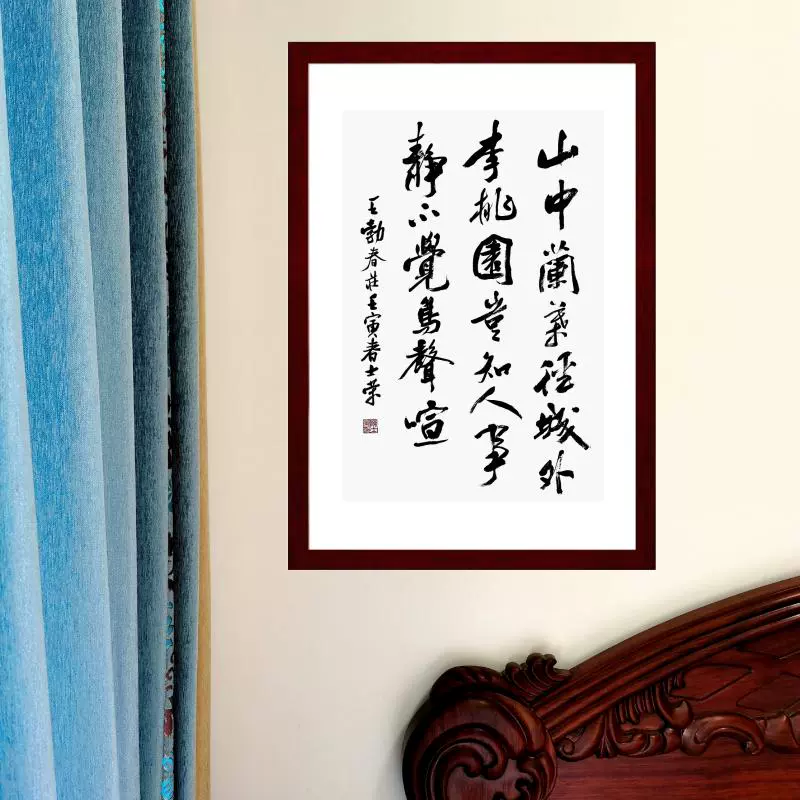 山中蘭葉徑城外
李桃園豈知人事
靜不覺鳥聲喧
王勃春莊壬寅春士荣